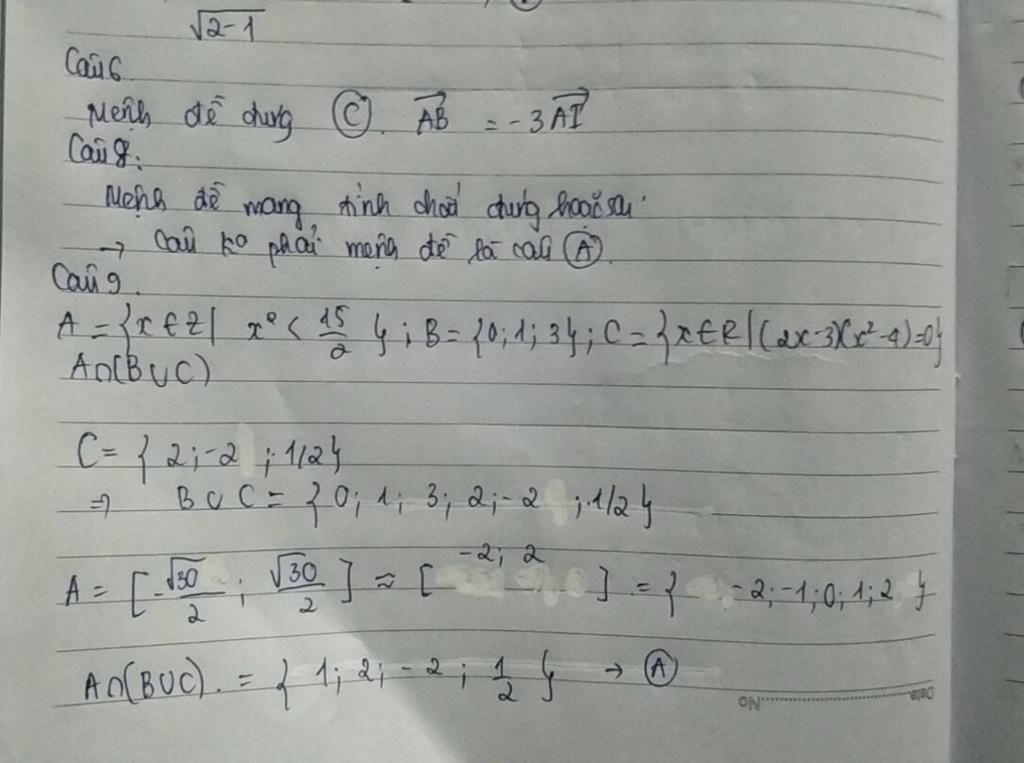 √2-1
Câu 6
Mệnh đề đúng C. AB = -3AI
Câu 8:
Mệnh đề mang tính chất đúng hoặc sai.
→ Câu ko phải mệnh đề là câu A
Câu 9.
A = {x ∈ Z | x² < 15/2 }; B = {0; 1; 3}; C = {x ∈ R | (2x-3)(x²-4)=0}
A∩(B∪C)
C = { 2; -2 ; 1/2}
=> B ∪ C = {0; 1; 3; 2; -2 ; 1/2}
A = [-√30/2 ; √30/2] ≈ [-2; 2] = { -2; -1; 0; 1; 2 }
A∩(B∪C) = { 1; 2; -2 ; 1/2 } → A
Date. No